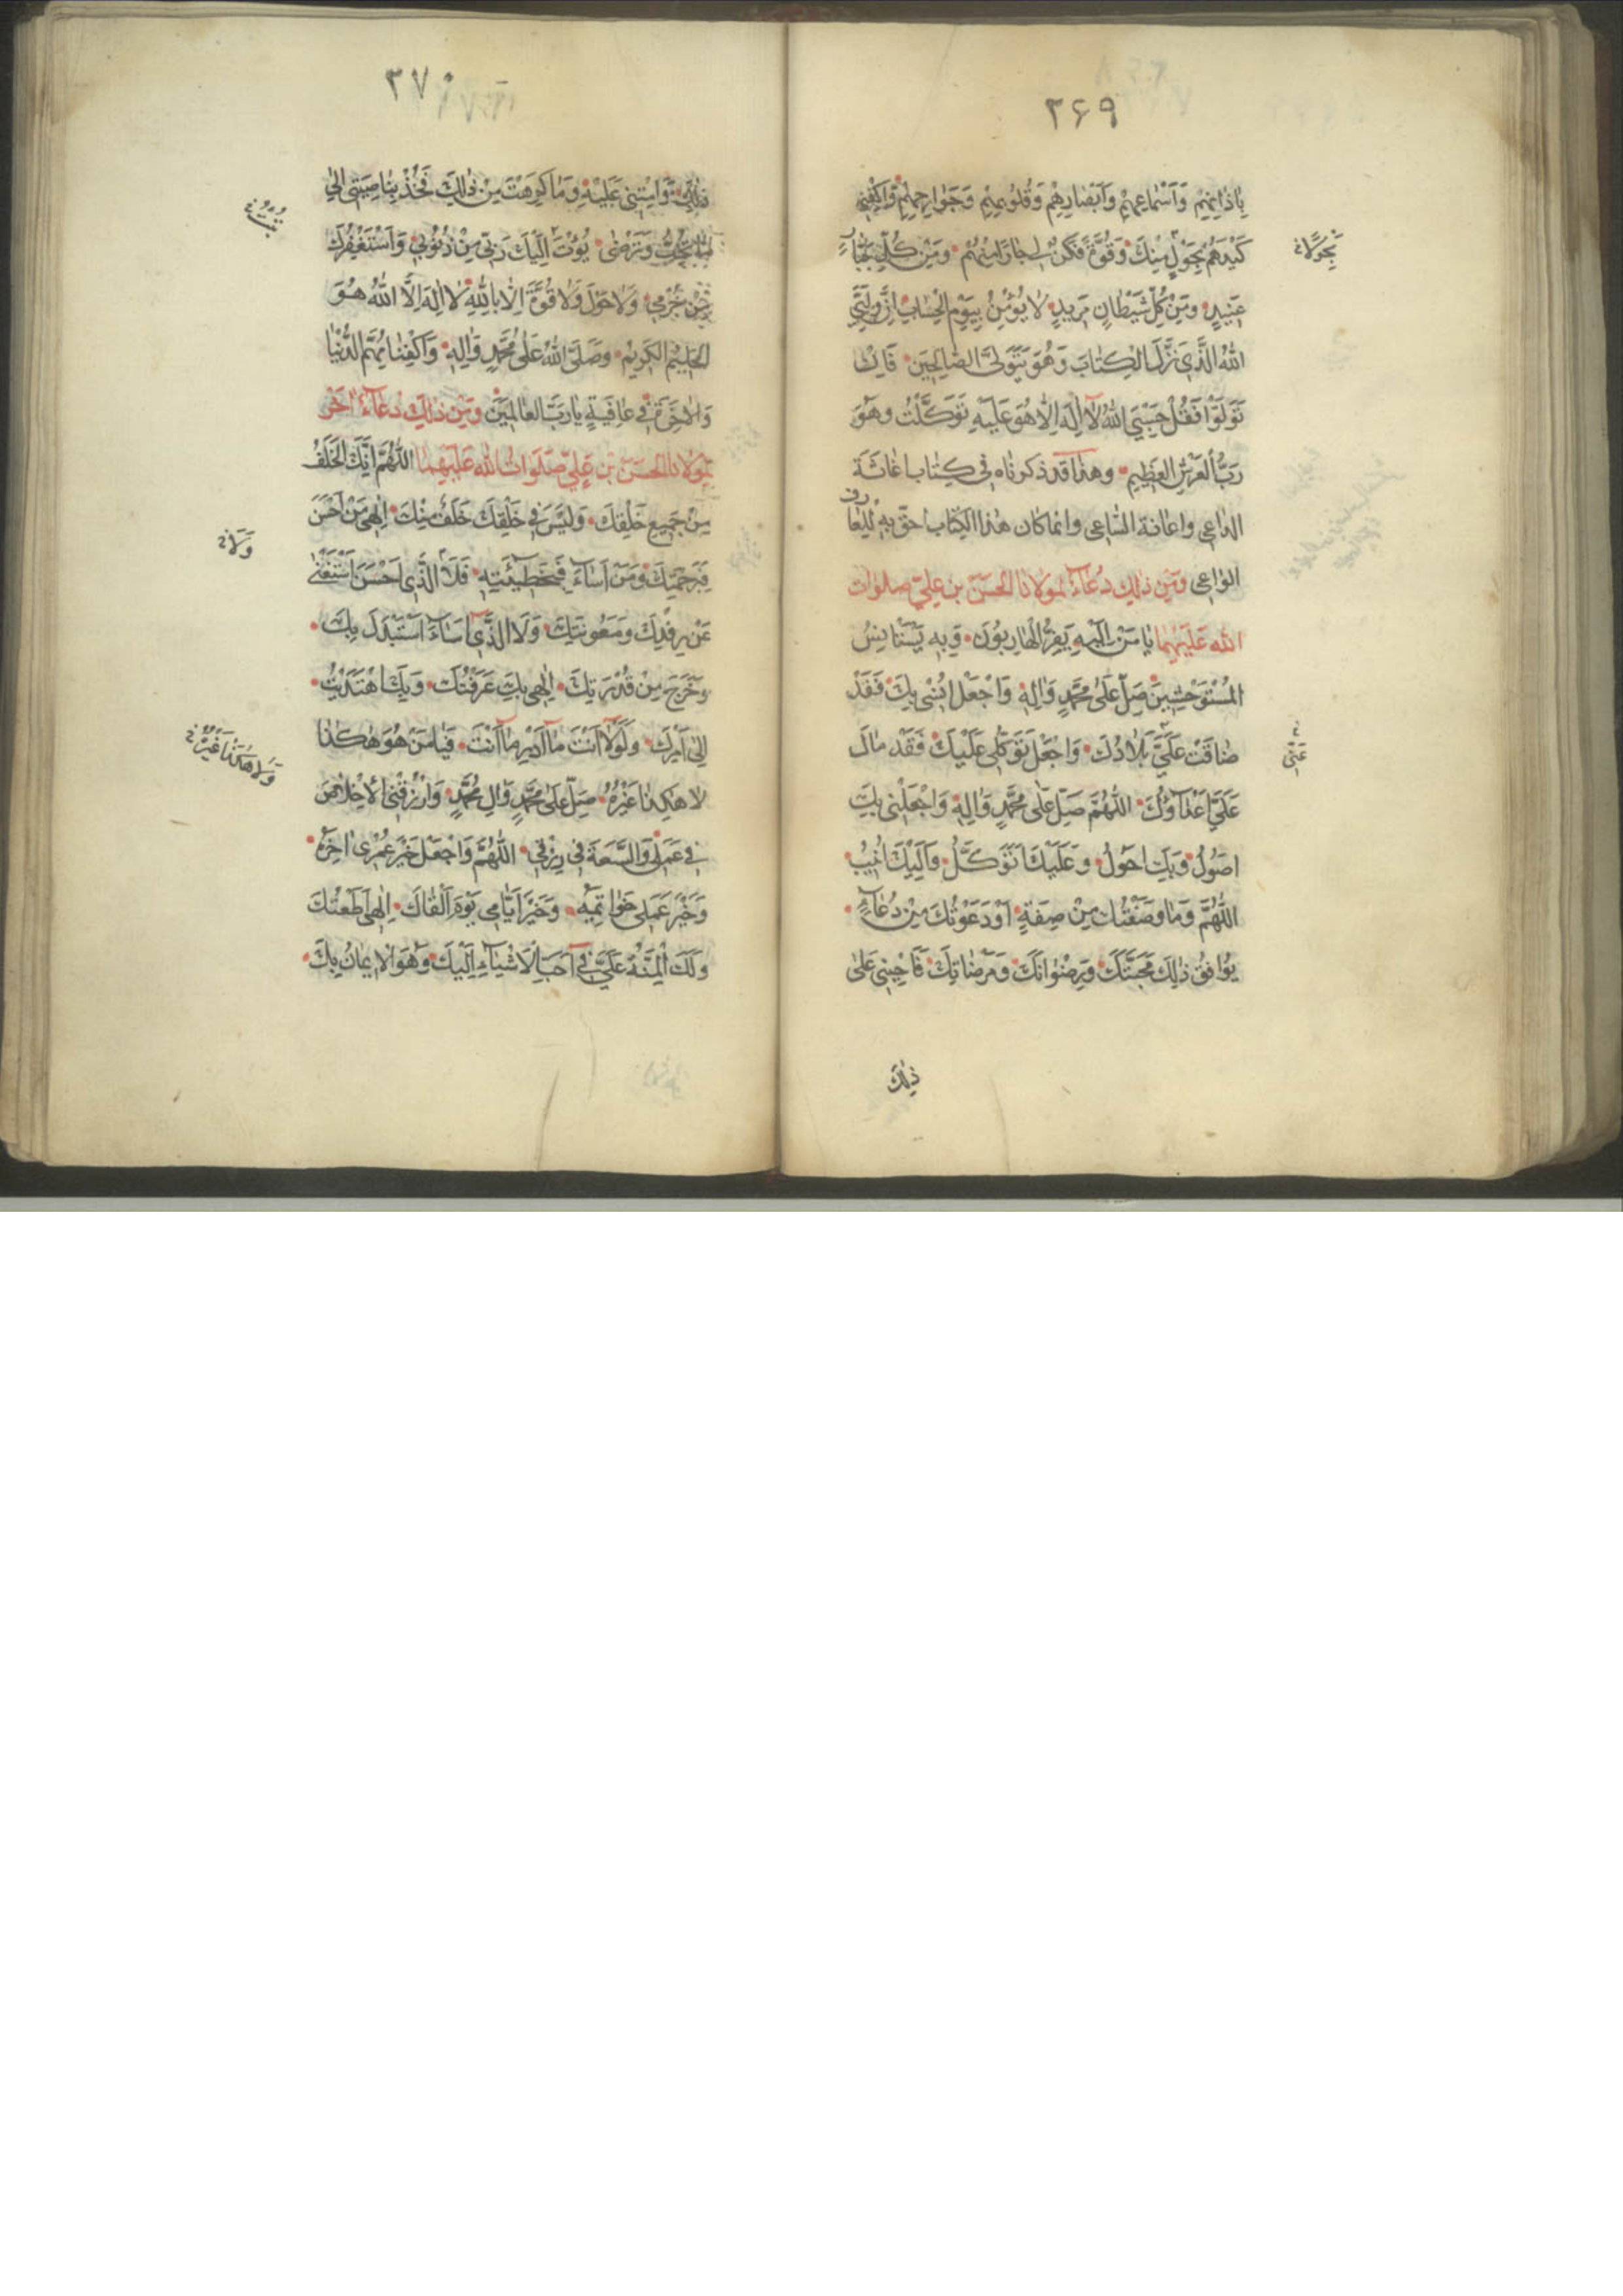 ٣۶٩
بِاذانِهِمْ وَاَسْماعِهِمْ وَاَبْصارِهِمْ وَقُلُوبِهِمْ وَجَوارِحِهِمْ وَاكْفِنى
كَيْدَهُمْ بِحَوْلٍ مِنْكَ وَقُوَّةٍ فَكُنْ لى جارًا مِنْهُمْ وَمِنْ كُلِّ جَبّارٍ
عَنيدٍ وَمِنْ كُلِّ شَيْطانٍ مَريدٍ لا يُؤْمِنُ بِيَوْمِ الْحِسابِ اِنَّ وَلِيِّىَ
اللهُ الَّذى نَزَّلَ الْكِتابَ وَهُوَ يَتَوَلَّى الصّالِحينَ فَاِنْ
تَوَلَّوْا فَقُلْ حَسْبِىَ اللهُ لا اِلهَ اِلّا هُوَ عَلَيْهِ تَوَكَّلْتُ وَهُوَ
رَبُّ الْعَرْشِ الْعَظيمِ وهذا قد ذكرناه فى كتاب اغاثة
الداعى واعانة الساعى وانما كان هذا الكتاب احق به للدعا
الواعى وَمِنْ ذلِكَ دُعاءٌ لِمَوْلانَا الْحَسَنِ بْنِ عَلِىٍّ صلوات
الله عَلَيْهِما يا مَنْ اِلَيْهِ يَفِرُّ الْهارِبُونَ وَبِهِ يَسْتَانِسُ
الْمُسْتَوْحِشِينَ صَلِّ عَلى مُحَمَّدٍ وَالِهِ وَاجْعَلْ اُنْسى بِكَ فَقَدْ
ضاقَتْ عَلَىَّ بِلادُكَ وَاجْعَلْ تَوَكُّلى عَلَيْكَ فَقَدْ مالَ
عَلَىَّ اَعْداؤُكَ اَللّهُمَّ صَلِّ عَلى مُحَمَّدٍ وَالِهِ وَاجْعَلْنى بِكَ
اَصُولُ وَبِكَ اَحُولُ وَعَلَيْكَ اَتَوَكَّلُ وَاِلَيْكَ اُنيبُ
اَللّهُمَّ وَما وَصَفْتُكَ مِنْ صِفَةٍ اَوْ دَعَوْتُكَ مِنْ دُعاءٍ
يُوافِقُ ذلِكَ مَحَبَّتَكَ وَرِضْوانَكَ وَمَرْضاتَكَ فَاَحْيِنى عَلى
ذلِكَ
٣٧٠
ذلِكَ وَاَمِتْنى عَلَيْهِ وَما كَرِهْتَ مِنْ ذلِكَ فَخُذْ بِناصِيَتى اِلى
ما تُحِبُّ وَتَرْضى بُؤْتُ اِلَيْكَ رَبّى مِنْ ذُنُوبى وَاَسْتَغْفِرُكَ
مِنْ جُرْمى وَلا حَوْلَ وَلا قُوَّةَ اِلّا بِاللهِ لا اِلهَ اِلَّا اللهُ هُوَ
الْحَليمُ الْكَريمُ وَصَلَّى اللهُ عَلى مُحَمَّدٍ وَالِهِ وَاكْفِنا مُهِمَّ الدُّنْيا
وَالاخِرَةِ فى عافِيَةٍ يا رَبَّ الْعالَمينَ وَمِنْ ذلِكَ دُعاءٌ اخَرُ
لِمَوْلانَا الْحَسَنِ بْنِ عَلِىٍّ صَلَواتُ اللهِ عَلَيْهِما اَللّهُمَّ اِنَّكَ الْخَلَفُ
مِنْ جَميعِ خَلْقِكَ وَلَيْسَ فى خَلْقِكَ خَلَفٌ مِنْكَ اِلهى مَنْ اَحْسَنَ
فَبِرَحْمَتِكَ وَمَنْ اَساءَ فَبِخَطيئَتِهِ فَلَا الَّذى اَحْسَنَ اسْتَغْنى
عَنْ رِفْدِكَ وَمَعُونَتِكَ وَلَا الَّذى اَساءَ اسْتَبْدَلَ بِكَ
وَخَرَجَ مِنْ قُدْرَتِكَ اِلهى بِكَ عَرَفْتُكَ وَبِكَ اهْتَدَيْتُ
اِلى اَمْرِكَ وَلَوْلا اَنْتَ ما اَدْرِ ما اَنْتَ فَيا مَنْ هُوَ هكَذا
لا هكَذا غَيْرُهُ صَلِّ عَلى مُحَمَّدٍ وَالِ مُحَمَّدٍ وَارْزُقْنى الْاِخْلاصَ
فى عَمَلى وَالسَّعَةَ فى رِزْقى اَللّهُمَّ وَاجْعَلْ خَيْرَ عُمْرى اخِرَهُ
وَخَيْرَ عَمَلى خَواتِمَهُ وَخَيْرَ اَيّامى يَوْمَ اَلْقاكَ اِلهى اَطَعْتُكَ
وَلَكَ الْمِنَّةُ عَلَىَّ فى اَحَبِّ الْاَشْياءِ اِلَيْكَ وَهُوَ الْايمانُ بِكَ
وَلا
وَلا هكَذا غَيْرُهُ